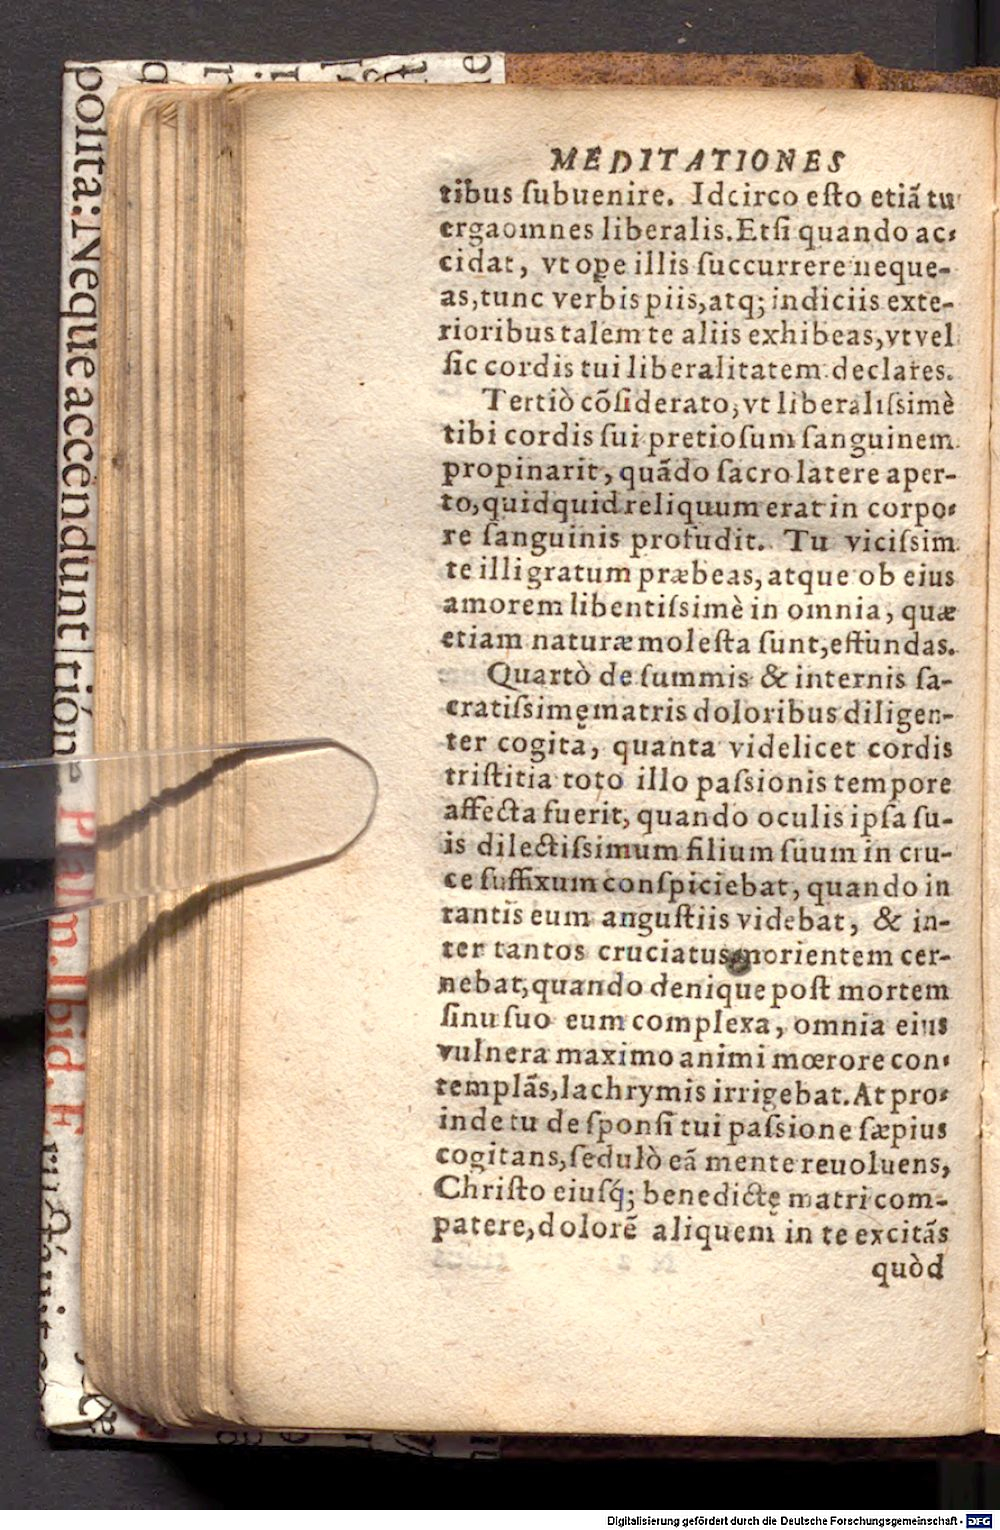 MEDITATIONES
tibus ſubuenire. Idcirco eſto etiã tu
ergaomnes liberalis.Etſi quando ac-
cidat, vt ope illis ſuccurrere neque-
as,tunc verbis piis,atq; indiciis exte-
rioribus talem te aliis exhibeas,vt vel
ſic cordis tui liberalitatem declares.
Tertiò cõſiderato, vt liberaliſsimè
tibi cordis ſui pretioſum ſanguinem
propinarit, quãdo ſacro latere aper-
to,quidquid reliquum erat in corpo-
re ſanguinis profudit. Tu viciſsim
te illi gratum præbeas, atque ob eius
amorem libentiſsimè in omnia, quæ
etiam naturæ moleſta ſunt,effundas.
Quartò de ſummis & internis ſa-
cratiſsimę matris doloribus diligen-
ter cogita, quanta videlicet cordis
triſtitia toto illo paſsionis tempore
affecta fuerit, quando oculis ipſa ſu-
is dilectiſsimum filium ſuum in cru-
ce ſuffixum conſpiciebat, quando in
tantis eum anguſtiis videbat, & in-
ter tantos cruciatus morientem cer-
nebat,quando denique poſt mortem
ſinu ſuo eum complexa, omnia eius
vulnera maximo animi mœrore con-
templãs,lachrymis irrigebat. At pro-
inde tu de ſponſi tui paſsione ſæpius
cogitans,ſedulò eã mente reuoluens,
Chriſto eiuſq́; benedictę matri com-
patere,dolorẽ aliquem in te excitãs
quòd
polita: Neque accendunt
trión
Pſalm. Ibid. F
Digitalisierung gefördert durch die Deutsche Forschungsgemeinschaft - DFG